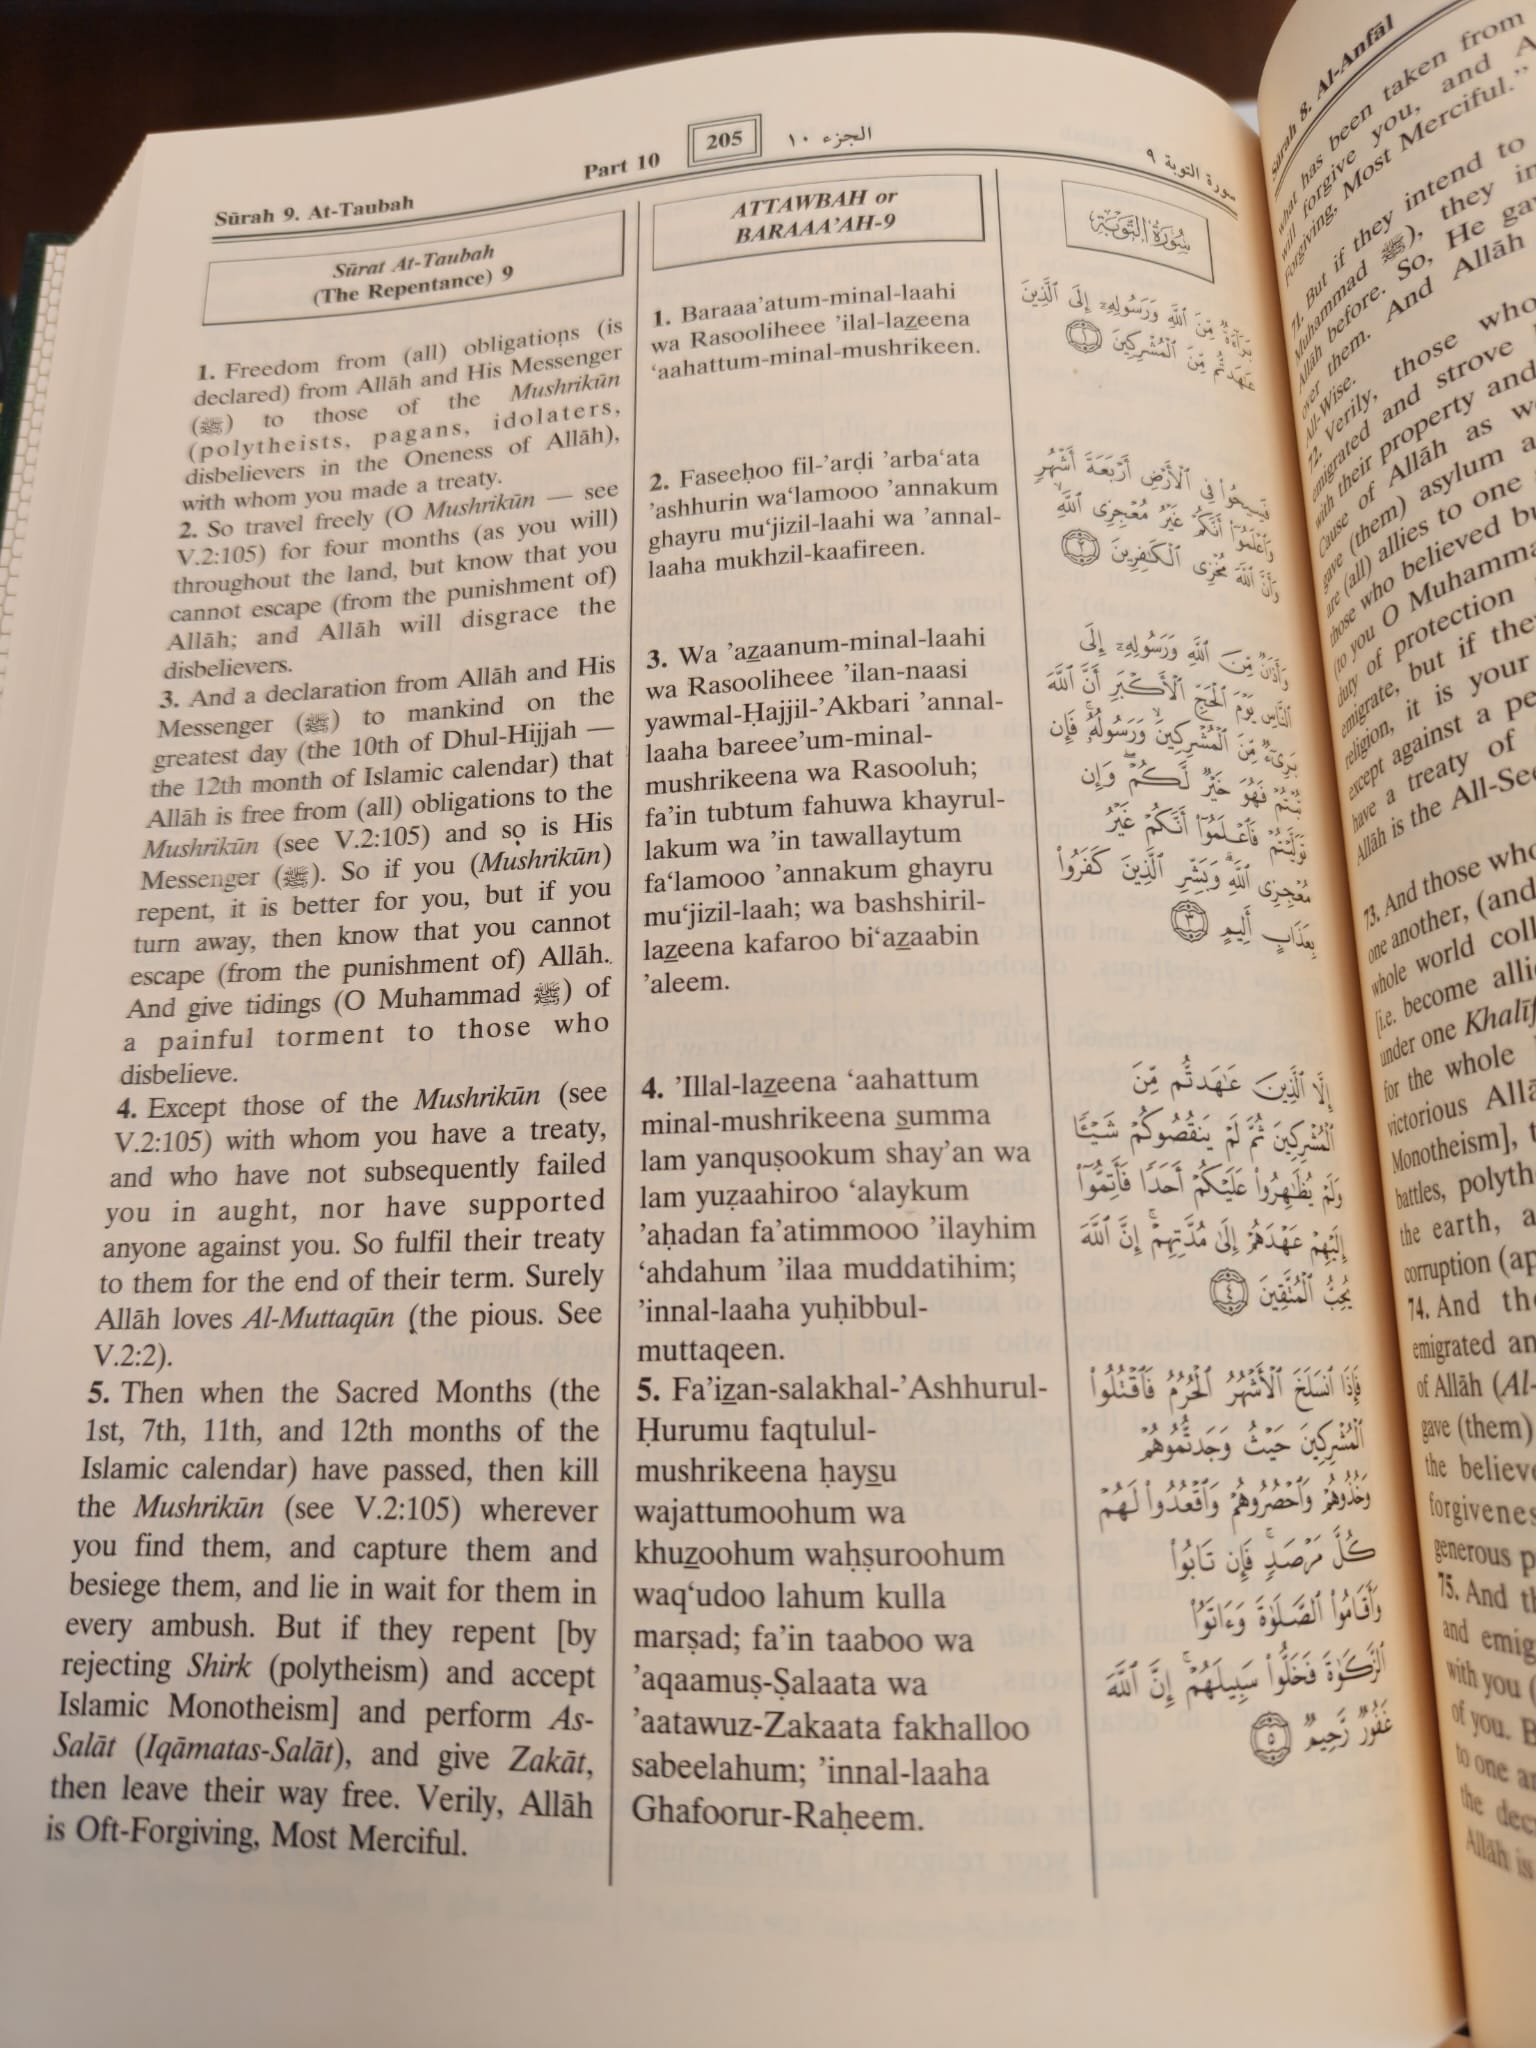 Sūrah 9. At-Taubah
Part 10
205
الجزء ١٠
سورة التوبة ٩
Sūrat At-Taubah
(The Repentance) 9
1. Freedom from (all) obligations (is
declared) from Allāh and His Messenger
(ﷺ) to those of the Mushrikūn
(polytheists, pagans, idolaters,
disbelievers in the Oneness of Allāh),
with whom you made a treaty.
2. So travel freely (O Mushrikūn — see
V.2:105) for four months (as you will)
throughout the land, but know that you
cannot escape (from the punishment of)
Allāh; and Allāh will disgrace the
disbelievers.
3. And a declaration from Allāh and His
Messenger (ﷺ) to mankind on the
greatest day (the 10th of Dhul-Hijjah —
the 12th month of Islamic calendar) that
Allāh is free from (all) obligations to the
Mushrikūn (see V.2:105) and so is His
Messenger (ﷺ). So if you (Mushrikūn)
repent, it is better for you, but if you
turn away, then know that you cannot
escape (from the punishment of) Allāh.
And give tidings (O Muhammad ﷺ) of
a painful torment to those who
disbelieve.
4. Except those of the Mushrikūn (see
V.2:105) with whom you have a treaty,
and who have not subsequently failed
you in aught, nor have supported
anyone against you. So fulfil their treaty
to them for the end of their term. Surely
Allāh loves Al-Muttaqūn (the pious. See
V.2:2).
5. Then when the Sacred Months (the
1st, 7th, 11th, and 12th months of the
Islamic calendar) have passed, then kill
the Mushrikūn (see V.2:105) wherever
you find them, and capture them and
besiege them, and lie in wait for them in
every ambush. But if they repent [by
rejecting Shirk (polytheism) and accept
Islamic Monotheism] and perform As-
Salāt (Iqāmatas-Salāt), and give Zakāt,
then leave their way free. Verily, Allāh
is Oft-Forgiving, Most Merciful.
ATTAWBAH or
BARAAA’AH-9
1. Baraaa’atum-minal-laahi
wa Rasooliheee ’ilal-lazeena
‘aahattum-minal-mushrikeen.
2. Faseeḥoo fil-’arḍi ’arba‘ata
’ashhurin wa‘lamooo ’annakum
ghayru mu‘jizil-laahi wa ’annal-
laaha mukhzil-kaafireen.
3. Wa ’azaanum-minal-laahi
wa Rasooliheee ’ilan-naasi
yawmal-Ḥajjil-’Akbari ’annal-
laaha bareee’um-minal-
mushrikeena wa Rasooluh;
fa’in tubtum fahuwa khayrul-
lakum wa ’in tawallaytum
fa‘lamooo ’annakum ghayru
mu‘jizil-laah; wa bashshiril-
lazeena kafaroo bi‘azaabin
’aleem.
4. ’Illal-lazeena ‘aahattum
minal-mushrikeena summa
lam yanquṣookum shay’an wa
lam yuẓaahiroo ‘alaykum
’aḥadan fa’atimmooo ’ilayhim
‘ahdahum ’ilaa muddatihim;
’innal-laaha yuḥibbul-
muttaqeen.
5. Fa’izan-salakhal-’Ashhurul-
Ḥurumu faqtulul-
mushrikeena ḥaysu
wajattumoohum wa
khuzoohum waḥṣuroohum
waq‘udoo lahum kulla
marṣad; fa’in taaboo wa
’aqaamuṣ-Ṣalaata wa
’aatawuz-Zakaata fakhalloo
sabeelahum; ’innal-laaha
Ghafoorur-Raḥeem.
سُورَةُ التَّوْبَة
بَرَآءَةٌ مِّنَ ٱللَّهِ وَرَسُولِهِۦٓ إِلَى ٱلَّذِينَ
عَـٰهَدتُّم مِّنَ ٱلْمُشْرِكِينَ ١
فَسِيحُوا۟ فِى ٱلْأَرْضِ أَرْبَعَةَ أَشْهُرٍ
وَٱعْلَمُوٓا۟ أَنَّكُمْ غَيْرُ مُعْجِزِى ٱللَّهِ
وَأَنَّ ٱللَّهَ مُخْزِى ٱلْكَـٰفِرِينَ ٢
وَأَذَٰنٌ مِّنَ ٱللَّهِ وَرَسُولِهِۦٓ إِلَى
ٱلنَّاسِ يَوْمَ ٱلْحَجِّ ٱلْأَكْبَرِ أَنَّ ٱللَّهَ
بَرِىٓءٌ مِّنَ ٱلْمُشْرِكِينَ وَرَسُولُهُۥ فَإِن
تُبْتُمْ فَهُوَ خَيْرٌ لَّكُمْ وَإِن
تَوَلَّيْتُمْ فَٱعْلَمُوٓا۟ أَنَّكُمْ غَيْرُ
مُعْجِزِى ٱللَّهِ وَبَشِّرِ ٱلَّذِينَ كَفَرُوا۟
بِعَذَابٍ أَلِيمٍ ٣
إِلَّا ٱلَّذِينَ عَـٰهَدتُّم مِّنَ
ٱلْمُشْرِكِينَ ثُمَّ لَمْ يَنقُصُوكُمْ شَيْـًٔا
وَلَمْ يُظَـٰهِرُوا۟ عَلَيْكُمْ أَحَدًا فَأَتِمُّوٓا۟
إِلَيْهِمْ عَهْدَهُمْ إِلَىٰ مُدَّتِهِمْ إِنَّ ٱللَّهَ
يُحِبُّ ٱلْمُتَّقِينَ ٤
فَإِذَا ٱنسَلَخَ ٱلْأَشْهُرُ ٱلْحُرُمُ فَٱقْتُلُوا۟
ٱلْمُشْرِكِينَ حَيْثُ وَجَدتُّمُوهُمْ
وَخُذُوهُمْ وَٱحْصُرُوهُمْ وَٱقْعُدُوا۟ لَهُمْ
كُلَّ مَرْصَدٍ فَإِن تَابُوا۟
وَأَقَامُوا۟ ٱلصَّلَوٰةَ وَءَاتَوُا۟
ٱلزَّكَوٰةَ فَخَلُّوا۟ سَبِيلَهُمْ إِنَّ ٱللَّهَ
غَفُورٌ رَّحِيمٌ ٥
Sūrah 8. Al-Anfāl
what has been taken from
will forgive you, and
Forgiving, Most Merciful.”
71. But if they intend to
Muhammad ﷺ), they
Allāh before. So, He
over them. And Allāh
All-Wise.
72. Verily, those who
emigrated and strove
with their property and
Cause of Allāh as
gave (them) asylum
are (all) allies to one
those who believed
(to you O
duty of protection
emigrate, but if
religion, it is your
except against a
have a treaty of
Allāh is the
73. And those who
one another, (and
whole world
[i.e. become
under one
for the whole
victorious
Monotheism],
battles,
the earth,
corruption
74. And
emigrated
Allāh
gave (them)
the
forgiveness
generous
75. And
and
with you
of you.
to one
the
Allāh is